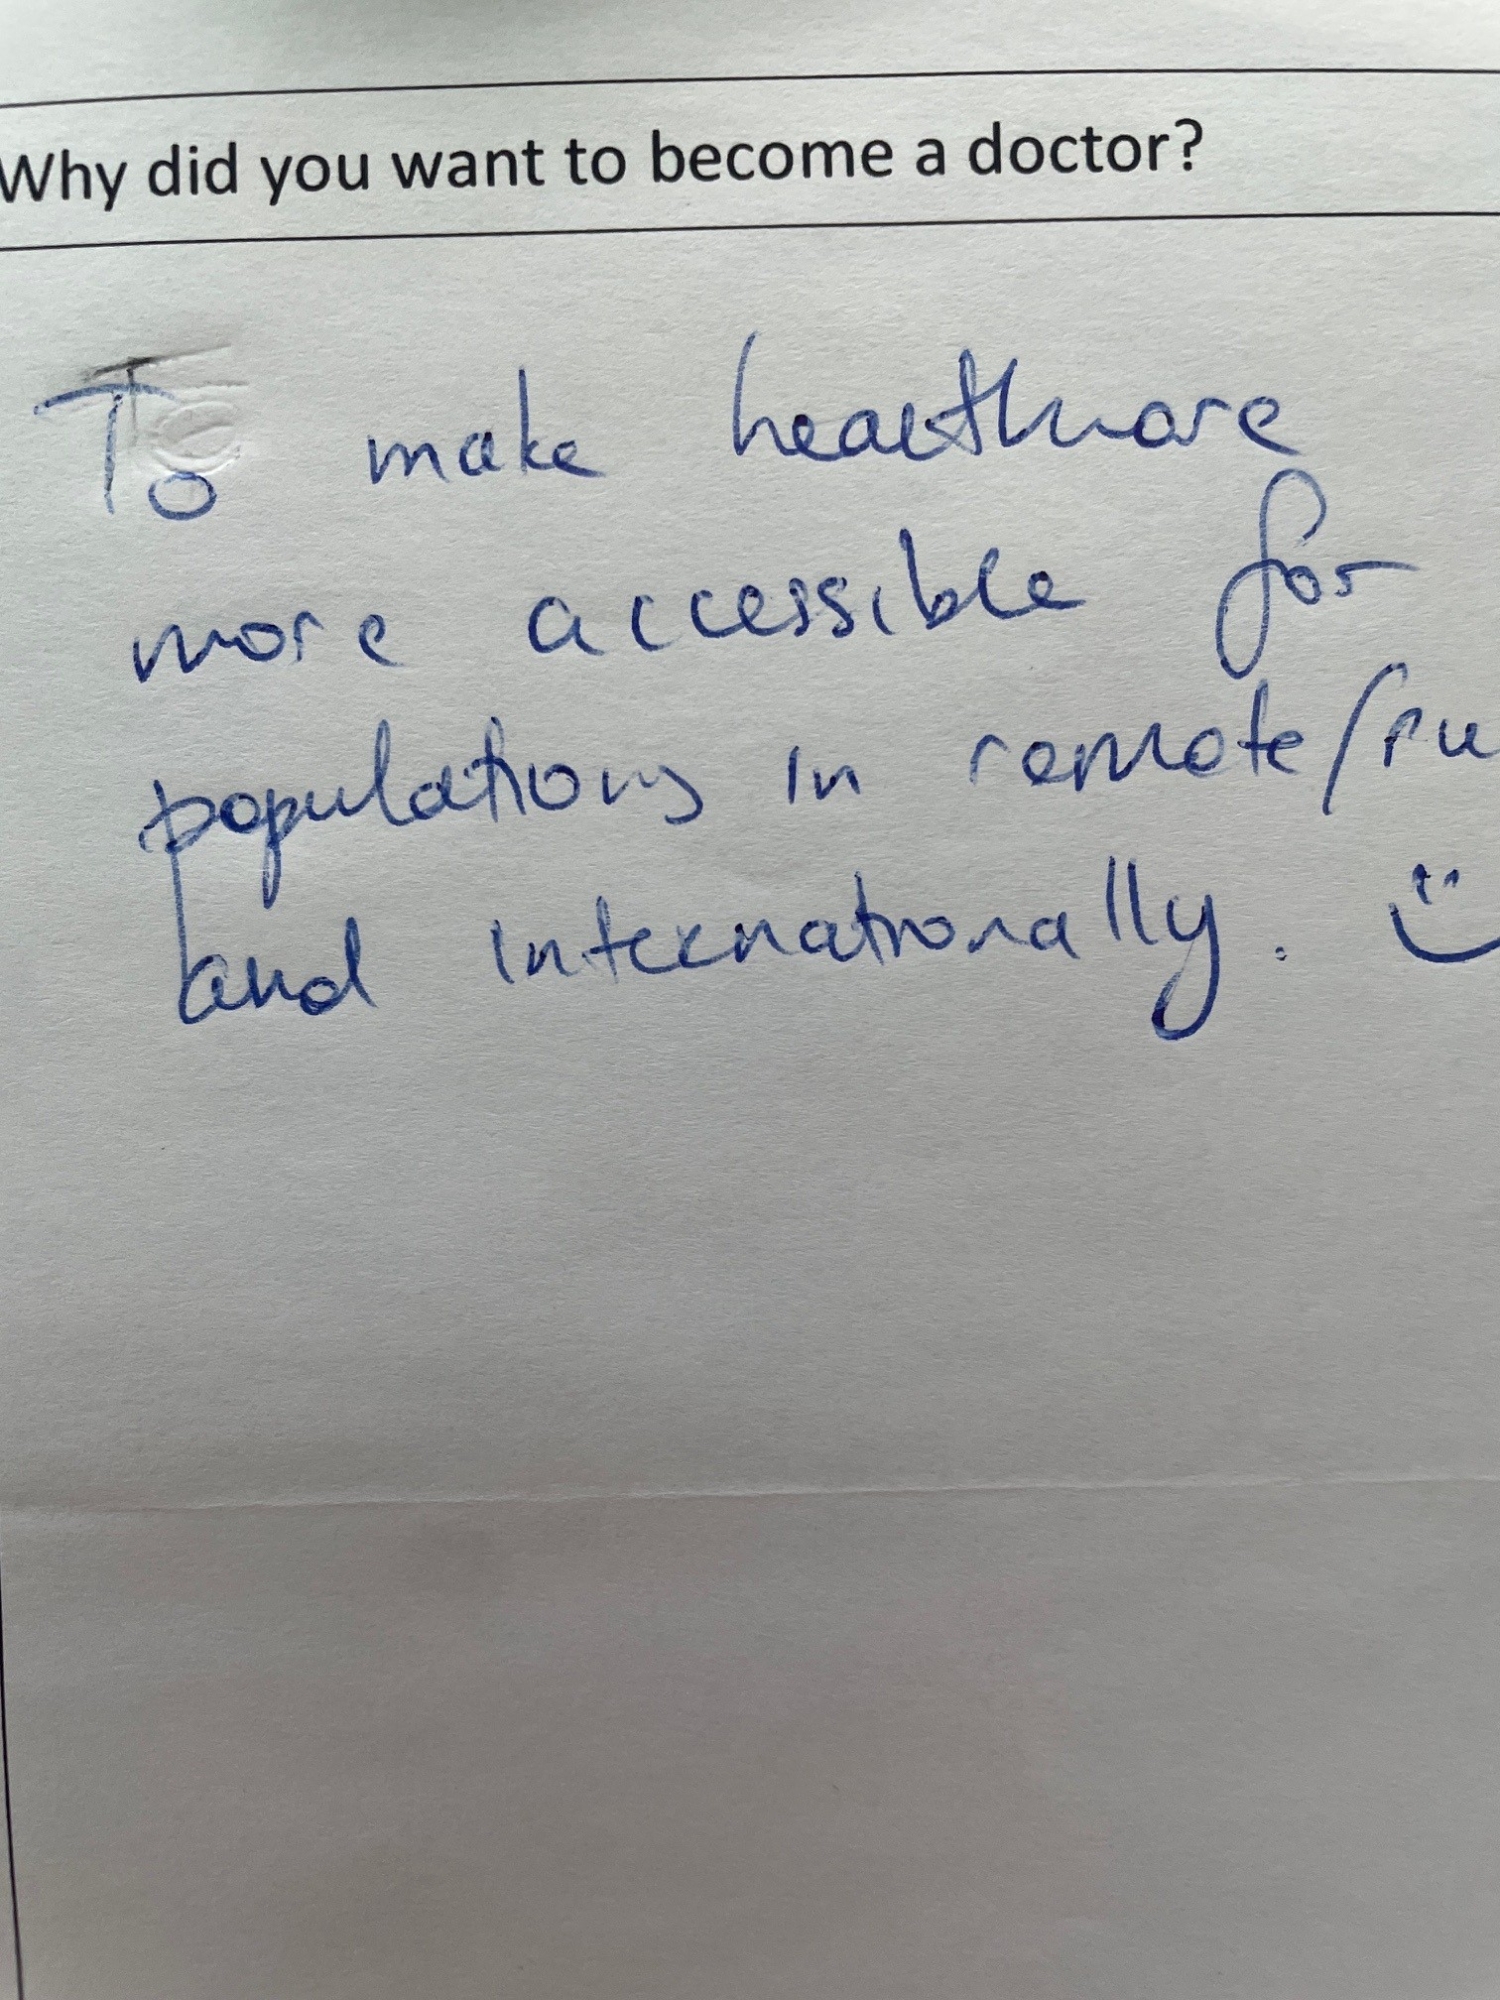 Why did you want to become a doctor?
To make healthcare
more accessible for
populations in remote/ru
and internationally. :)